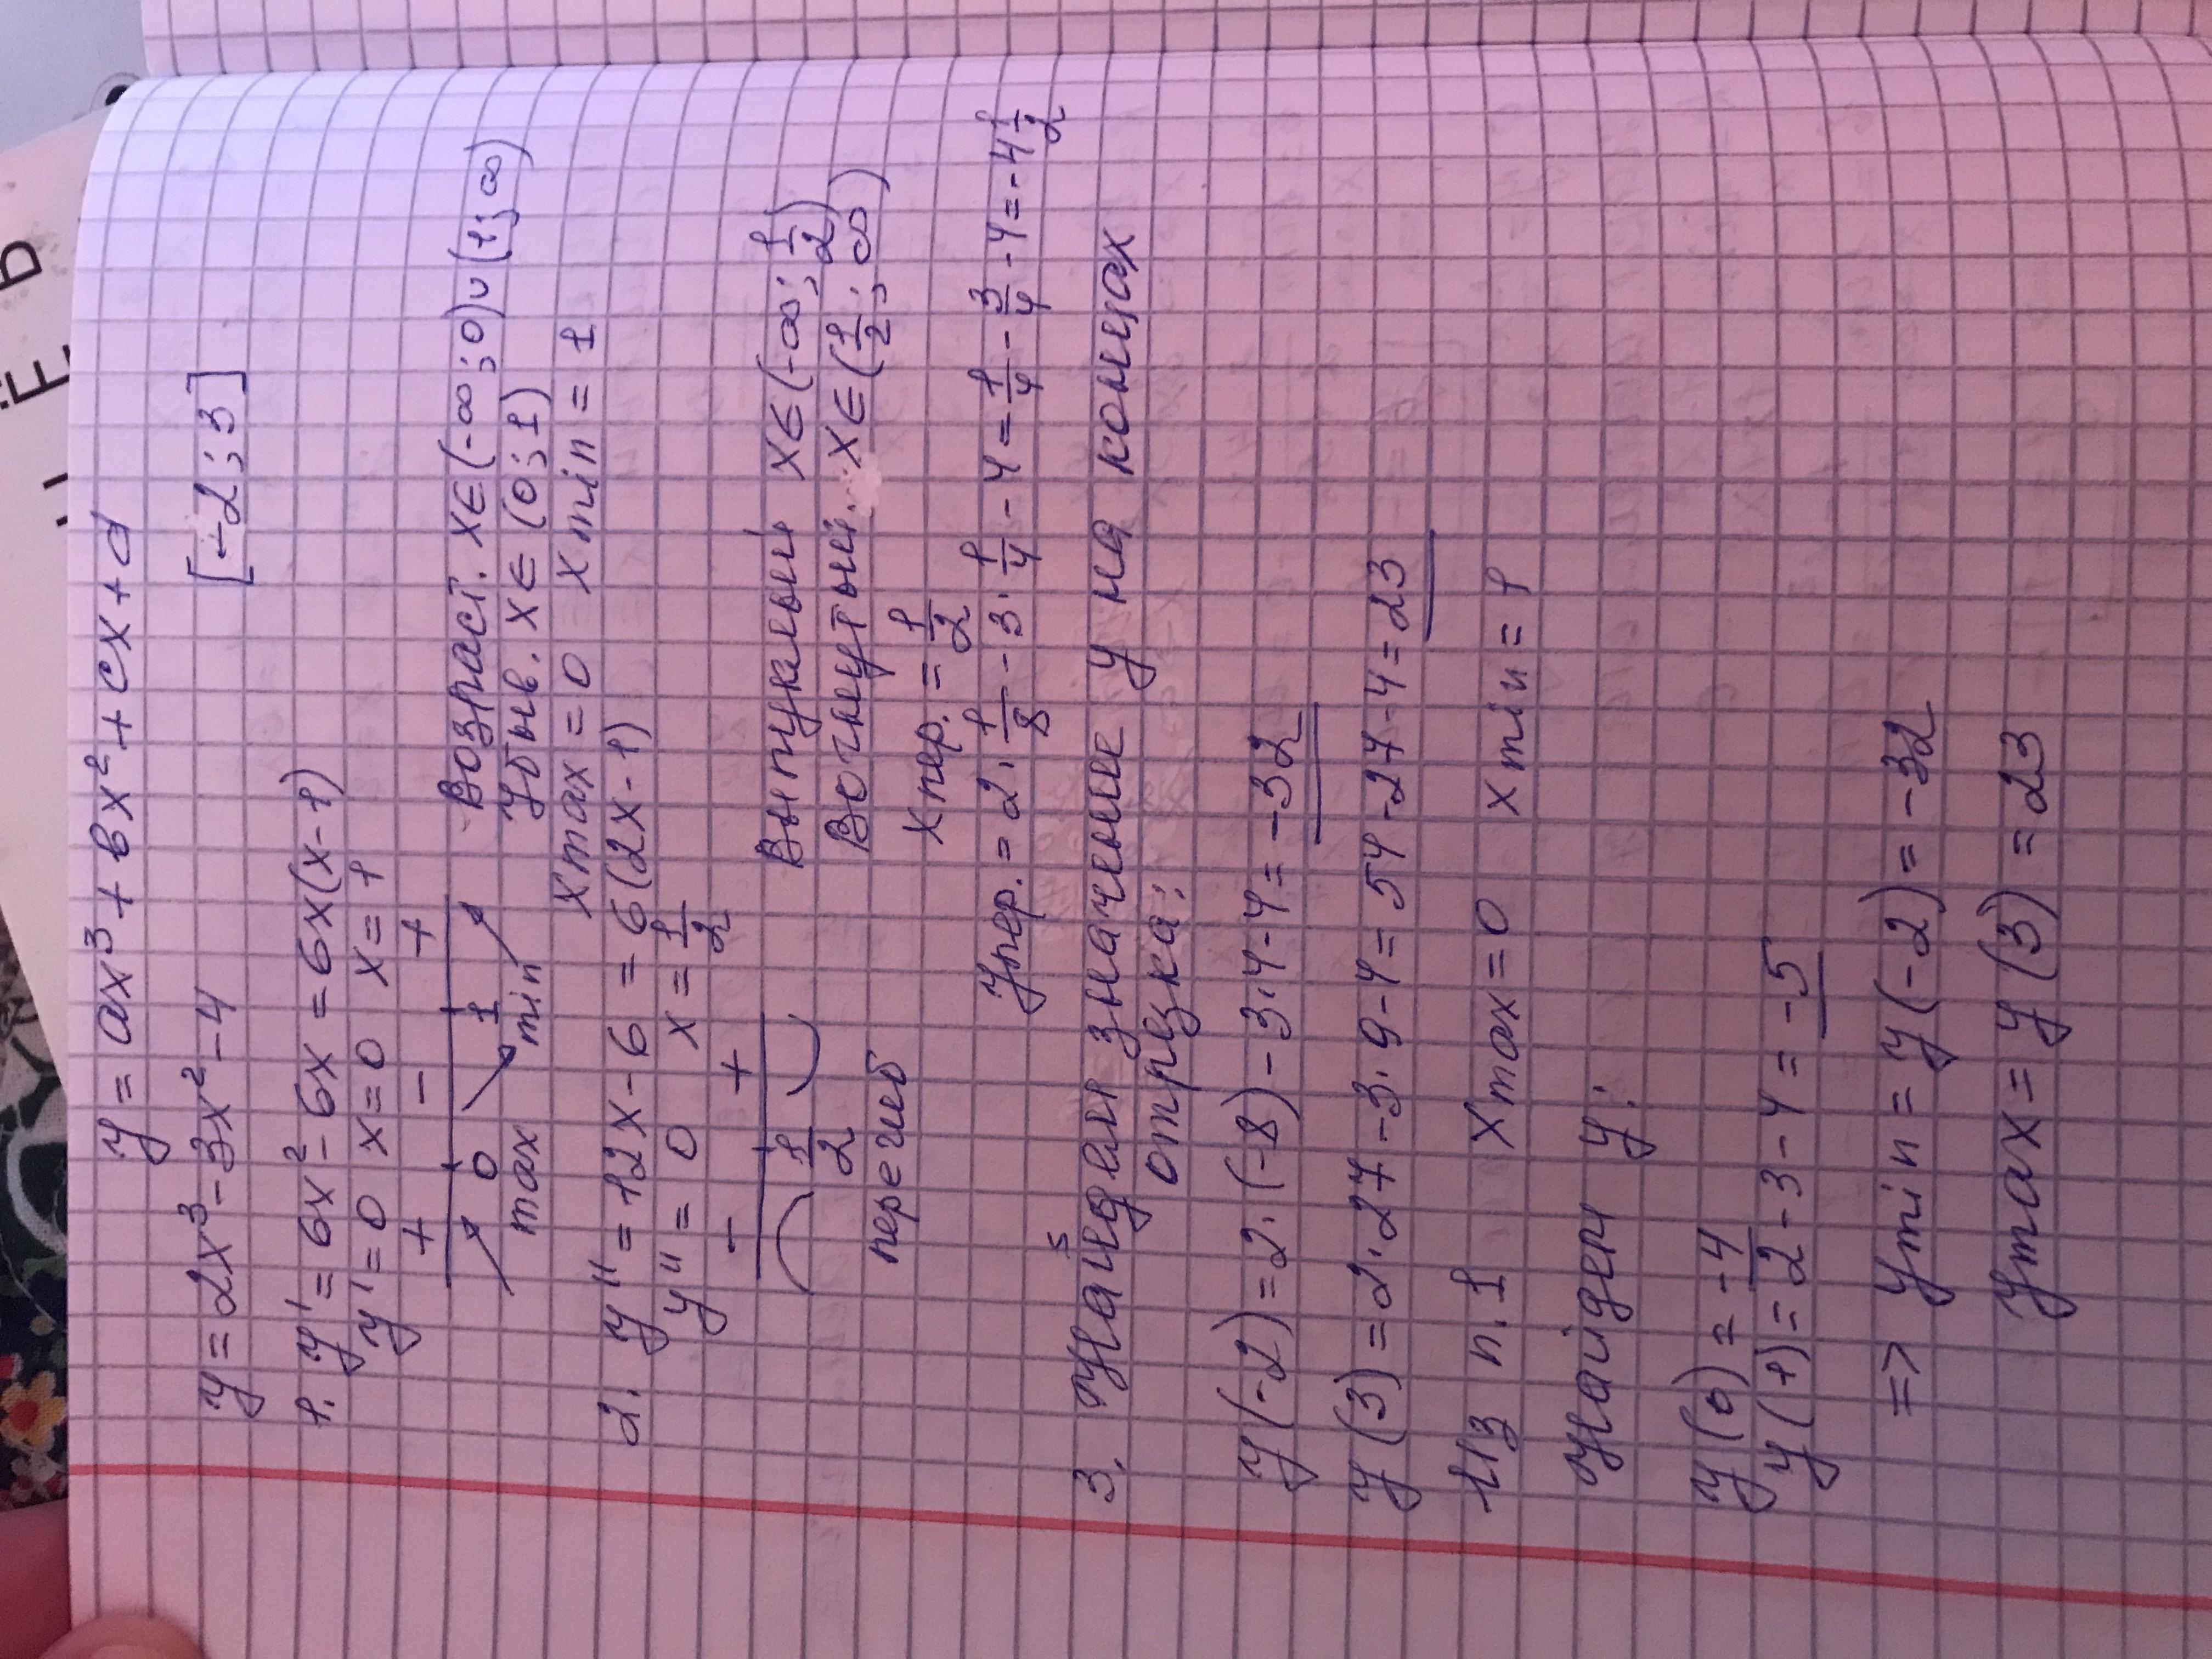 y = ax³ + вx² + cx + d
y = 2x³ - 3x² - 4 [-2; 3]
1. y' = 6x² - 6x = 6x(x-1)
y' = 0 x = 0 x = 1
+ - +
0 1
max min
Возраст. x∈(-∞; 0)∪(1; ∞)
Убыв. x∈(0; 1)
xmax = 0 xmin = 1
2. y'' = 12x - 6 = 6(2x-1)
y'' = 0 x = 1/2
- +
1/2
перегиб
Выпуклый x∈(-∞; 1/2)
Вогнутый. x∈(1/2; ∞)
xпер. = 1/2
yпер. = 2·1/8 - 3·1/4 - 4 = 1/4 - 3/4 - 4 = -4 1/2
3. Найдем значение y на концах
отрезка:
y(-2) = 2·(-8) - 3·4 - 4 = -32
y(3) = 2·27 - 3·9 - 4 = 54 - 27 - 4 = 23
Из п. 1 xmax = 0 xmin = 1
Найдем y:
y(0) = -4
y(1) = 2 - 3 - 4 = -5
=> ymin = y(-2) = -32
ymax = y(3) = 23